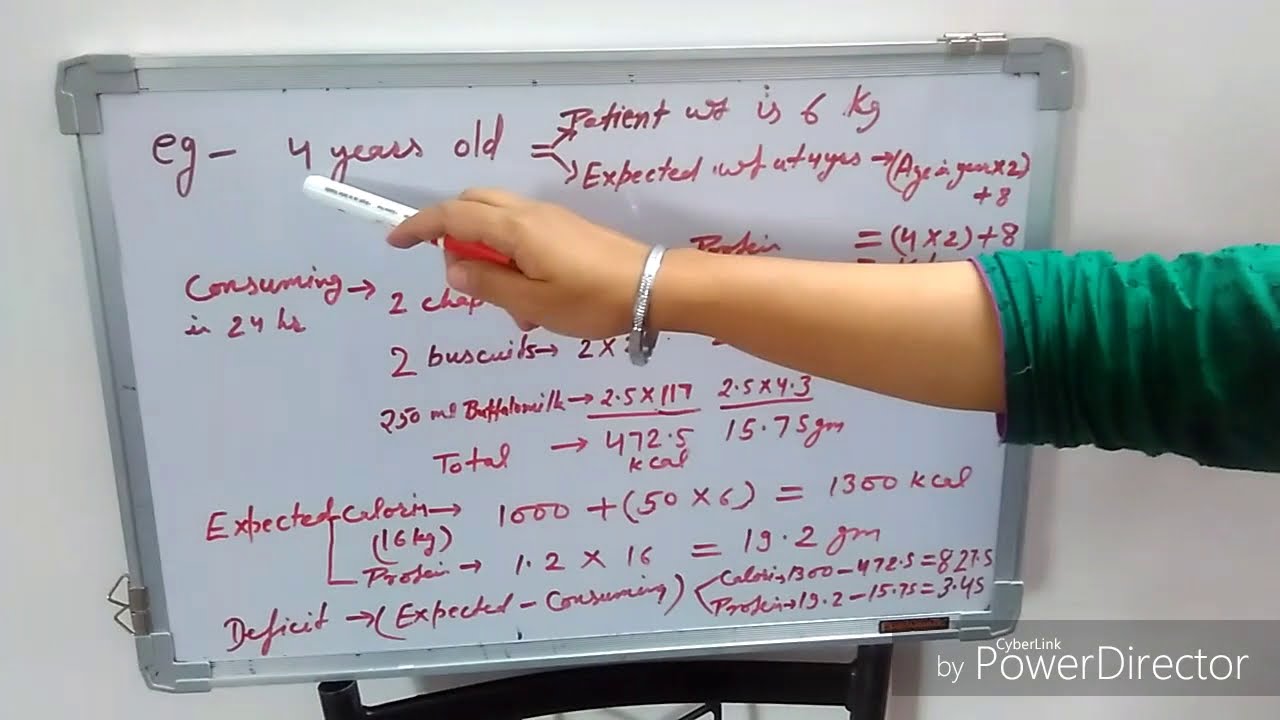 eg - 4 years old = Patient wt is 6 kg
Expected wt at 4 yrs → (Age in year × 2) + 8
Protein = (4 × 2) + 8
Consuming → 2
in 24 hr
2 buscuits → 2 ×
250 ml Buffalo milk → 2.5 × 117 2.5 × 4.3
Total → 472.5 kcal 15.75 gm
Expected Calorin → 1000 + (50 × 6) = 1300 kcal
(16 kg)
Protein → 1.2 × 16 = 19.2 gm
Deficit → (Expected - Consuming)
Calorin 1300 - 472.5 = 827.5
Protein → 19.2 - 15.75 = 3.45
CyberLink
by PowerDirector